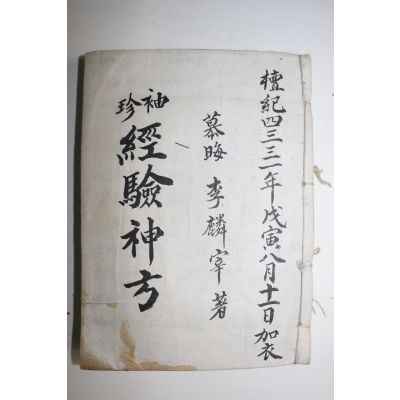 檀紀四三三一年戊寅八月十一日加衣
慕晦 李麟宰 著
袖珍
經驗神方